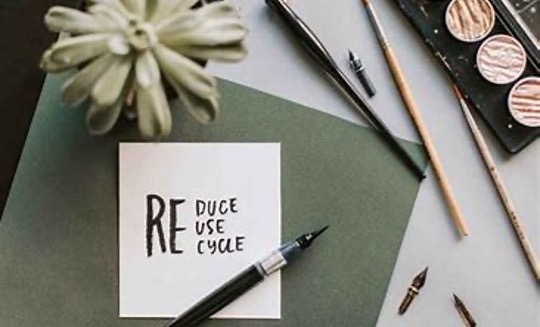 REDUCE
USE
CYCLE